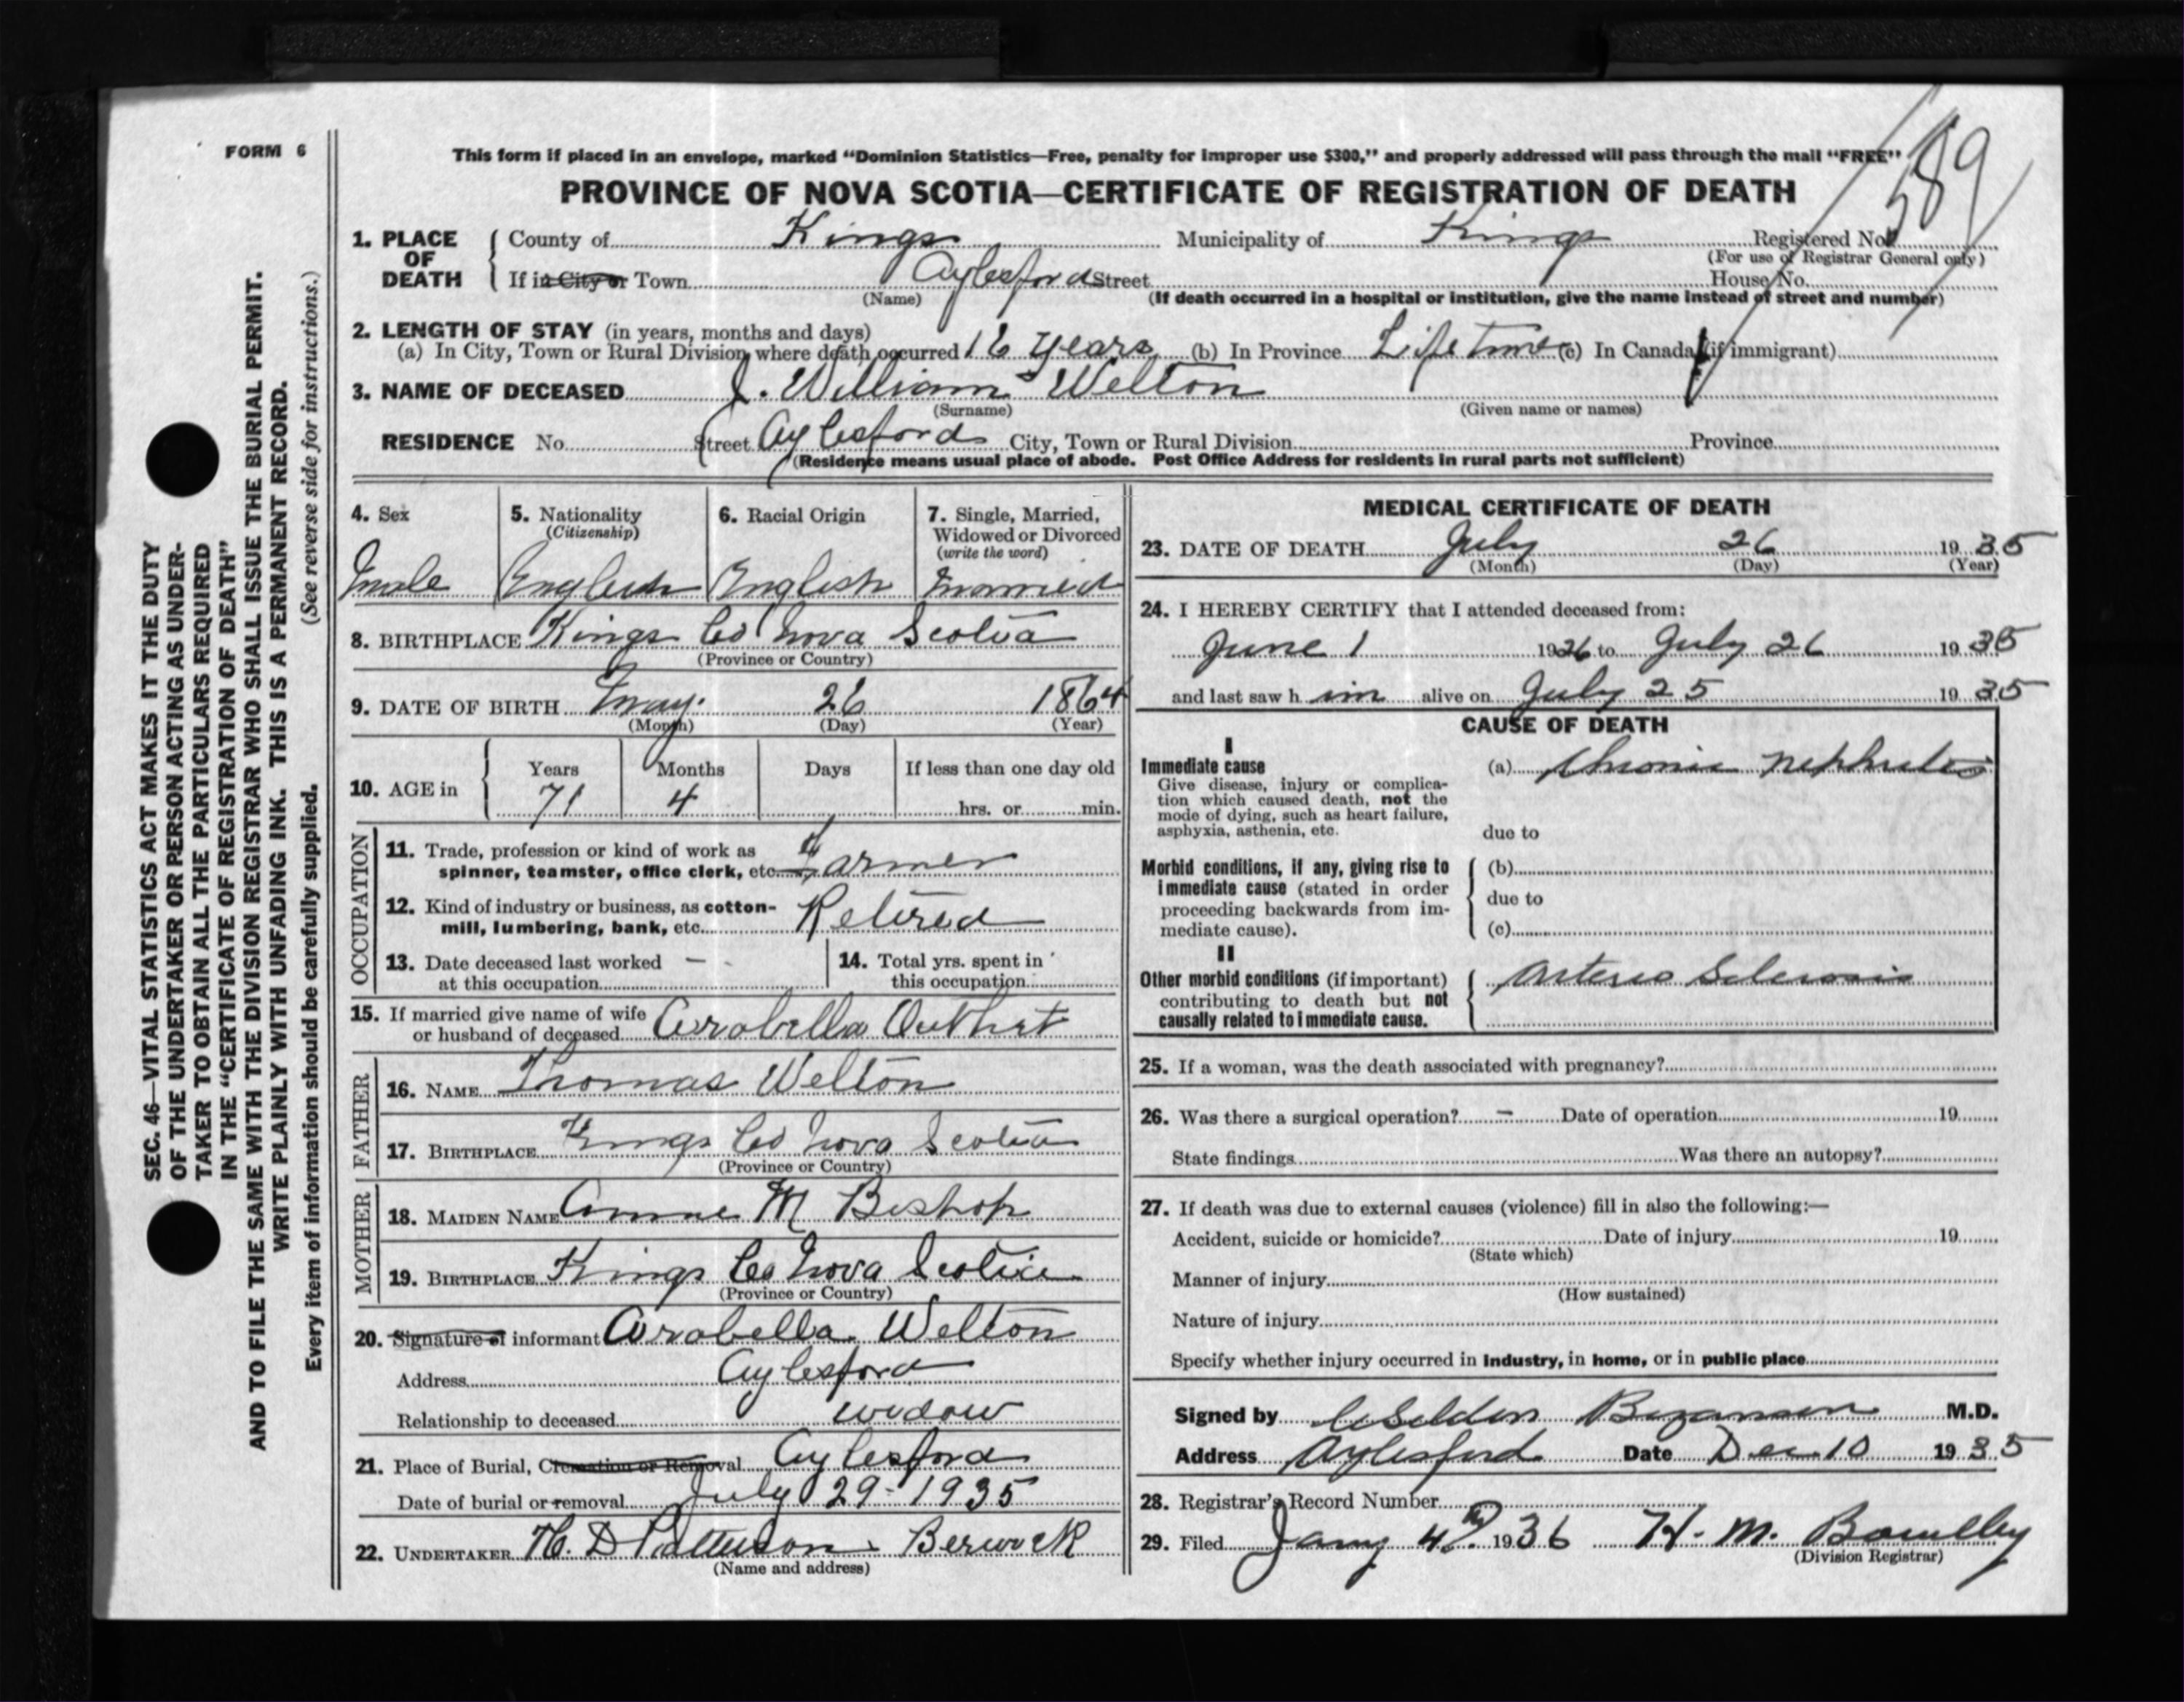 FORM 6
This form if placed in an envelope, marked "Dominion Statistics—Free, penalty for improper use $300," and properly addressed will pass through the mail "FREE"
589
PROVINCE OF NOVA SCOTIA—CERTIFICATE OF REGISTRATION OF DEATH
1. PLACE OF DEATH County of Kings Municipality of Kings Registered No.
(For use of Registrar General only)
If in City or Town Aylesford Street House No.
(Name) (If death occurred in a hospital or institution, give the name instead of street and number)
2. LENGTH OF STAY (in years, months and days)
(a) In City, Town or Rural Division where death occurred 16 years (b) In Province Life time (c) In Canada (if immigrant)
3. NAME OF DECEASED J. William Welton
(Surname) (Given name or names)
RESIDENCE No. Street Aylesford City, Town or Rural Division Province
(Residence means usual place of abode. Post Office Address for residents in rural parts not sufficient)
4. Sex 5. Nationality (Citizenship) 6. Racial Origin 7. Single, Married, Widowed or Divorced (write the word)
Male English English Married
8. BIRTHPLACE Kings Co Nova Scotia
(Province or Country)
9. DATE OF BIRTH May 26 1864
(Month) (Day) (Year)
10. AGE in Years Months Days If less than one day old
71 4 hrs. or min.
OCCUPATION
11. Trade, profession or kind of work as
spinner, teamster, office clerk, etc. Farmer
12. Kind of industry or business, as cotton-
mill, lumbering, bank, etc. Retired
13. Date deceased last worked — 14. Total yrs. spent in
at this occupation this occupation
15. If married give name of wife
or husband of deceased Arabella Outhit
FATHER
16. NAME Thomas Welton
17. BIRTHPLACE Kings Co Nova Scotia
(Province or Country)
MOTHER
18. MAIDEN NAME Annie M Bishop
19. BIRTHPLACE Kings Co Nova Scotia
(Province or Country)
20. Signature of informant Arabella Welton
Address Aylesford
Relationship to deceased widow
21. Place of Burial, Cremation or Removal Aylesford
Date of burial or removal July 29 - 1935
22. UNDERTAKER H. D Patterson Berwick
(Name and address)
MEDICAL CERTIFICATE OF DEATH
23. DATE OF DEATH July 26 1935
(Month) (Day) (Year)
24. I HEREBY CERTIFY that I attended deceased from:
June 1 1926 to July 26 1935
and last saw him alive on July 25 1935
CAUSE OF DEATH
I
Immediate cause (a) Chronic Nephritis
Give disease, injury or complica-
tion which caused death, not the
mode of dying, such as heart failure,
asphyxia, asthenia, etc. due to
Morbid conditions, if any, giving rise to (b)
immediate cause (stated in order
proceeding backwards from im- due to
mediate cause). (c)
II
Other morbid conditions (if important) Arterio Sclerosis
contributing to death but not
causally related to immediate cause.
25. If a woman, was the death associated with pregnancy?
26. Was there a surgical operation? — Date of operation 19
State findings Was there an autopsy?
27. If death was due to external causes (violence) fill in also the following:—
Accident, suicide or homicide? Date of injury 19
(State which)
Manner of injury
(How sustained)
Nature of injury
Specify whether injury occurred in industry, in home, or in public place
Signed by Bezanson M.D.
Address Aylesford Date Dec 10 1935
28. Registrar's Record Number
29. Filed Jany 4th 1936 H. M.
(Division Registrar)
SEC. 46—VITAL STATISTICS ACT MAKES IT THE DUTY
OF THE UNDERTAKER OR PERSON ACTING AS UNDER-
TAKER TO OBTAIN ALL THE PARTICULARS REQUIRED
IN THE "CERTIFICATE OF REGISTRATION OF DEATH"
AND TO FILE THE SAME WITH THE DIVISION REGISTRAR WHO SHALL ISSUE THE BURIAL PERMIT.
WRITE PLAINLY WITH UNFADING INK. THIS IS A PERMANENT RECORD.
Every item of information should be carefully supplied. (See reverse side for instructions.)